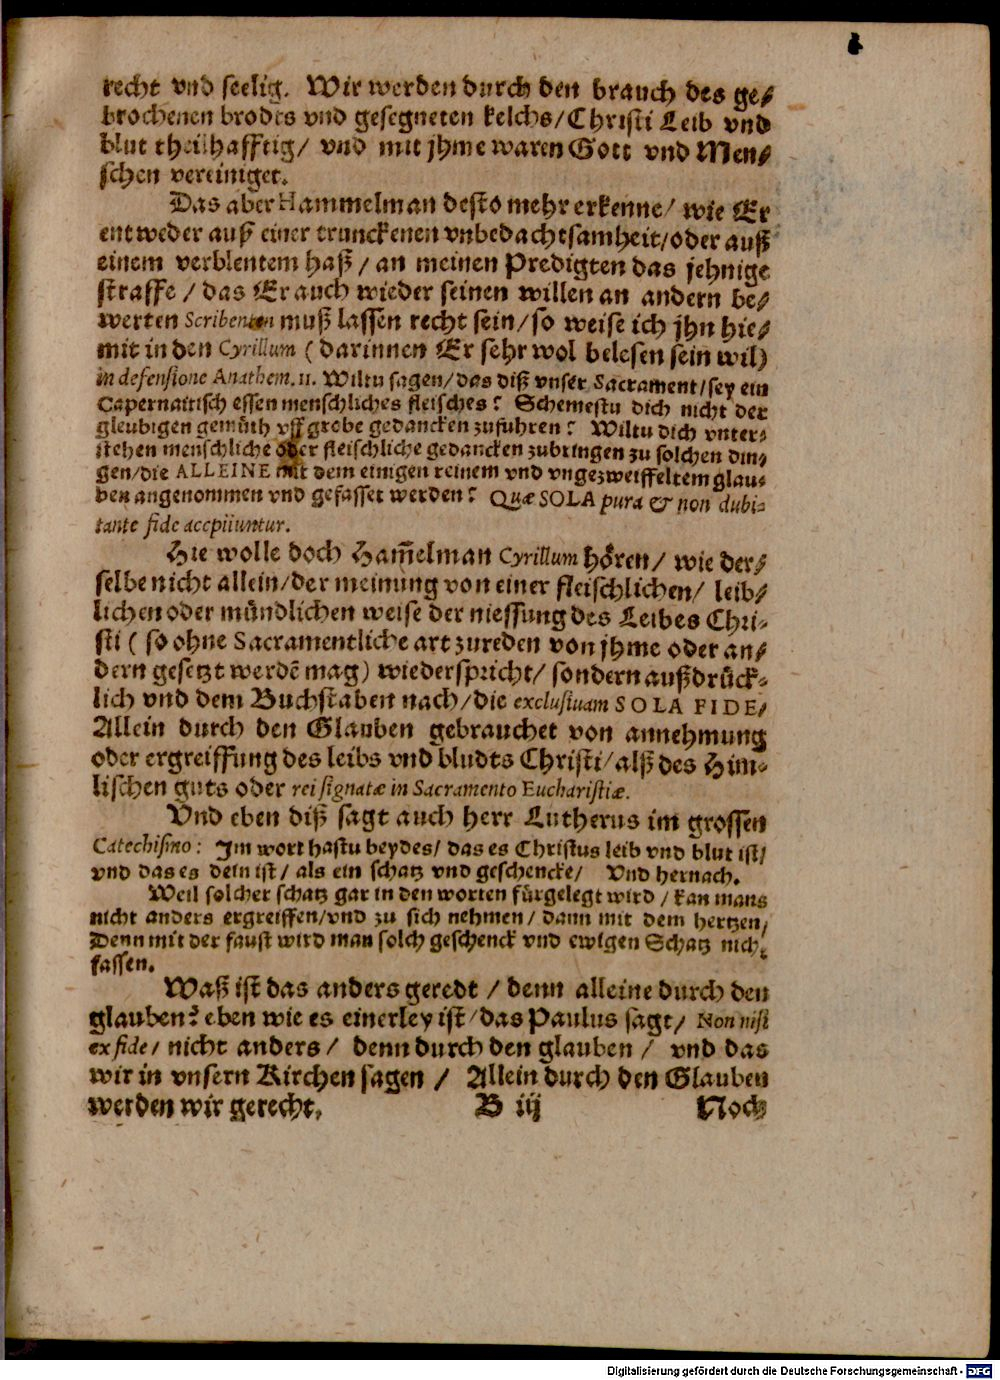 recht vnd seelig. Wir werden durch den brauch des ge⸗
brochenen brodts vnd gesegneten kelchs/ Christi Leib vnd
blut theilhafftig/ vnd mit jhme waren Gott vnd Men⸗
schen vereiniget.
Das aber Hammelman desto mehr erkenne/ wie Er
entweder auß einer trunckenen vnbedachtsamheit/ oder auß
einem verblentem haß / an meinen Predigten das jehnige
straffe / das Er auch wieder seinen willen an andern be⸗
werten Scribenten muß lassen recht sein/ so weise ich jhn hie⸗
mit in den Cyrillum ( darinnen Er sehr wol belesen sein wil)
in defensione Anathem. 11. Wiltu sagen/ das diß vnser Sacrament/ sey ein
Capernaitisch essen menschliches fleisches? Schemestu dich nicht der
gleubigen gemüth vff grobe gedancken zufuhren? Wiltu dich vnter⸗
stehen menschliche oder fleischliche gedancken zubringen zu solchen din⸗
gen/ die ALLEINE mit dem einigen reinem vnd vngezweiffeltem glau⸗
ben angenommen vnd gefasset werden? Quæ SOLA pura & non dubi-
tante fide accpiiuntur.
Hie wolle doch Ham̃elman Cyrillum hören/ wie der⸗
selbe nicht allein/ der meinung von einer fleischlichen/ leib⸗
lichen oder mündlichen weise der niessung des Leibes Chri⸗
sti ( so ohne Sacramentliche art zureden von jhme oder an⸗
dern gesetzt werdē mag) wiederspricht/ sondern außdrück⸗
lich vnd dem Buchstaben nach/ die exclusiuam SOLA FIDE,
Allein durch den Glauben gebrauchet von annehmung
oder ergreiffung des leibs vnd bludts Christi/ alß des Him⸗
lischen guts oder rei signatæ in Sacramento Eucharistiæ.
Vnd eben diß sagt auch herr Lutherus im grossen
Catechismo: Jm wort hastu beydes/ das es Christus leib vnd blut ist/
vnd das es dein ist/ als ein schatz vnd geschencke/ Vnd hernach.
Weil solcher schatz gar in den worten fürgelegt wird / kan mans
nicht anders ergreiffen/ vnd zu sich nehmen / dann mit dem hertzen/
Denn mit der faust wird man solch geschenck vnd ewigen Schatz nicht
fassen.
Waß ist das anders geredt / denn alleine durch den
glauben? eben wie es einerley ist/ das Paulus sagt/ Non nisi
ex fide/ nicht anders / denn durch den glauben / vnd das
wir in vnsern Kirchen sagen / Allein durch den Glauben
werden wir gerecht,
B iij
Noch
Digitalisierung gefördert durch die Deutsche Forschungsgemeinschaft - DFG